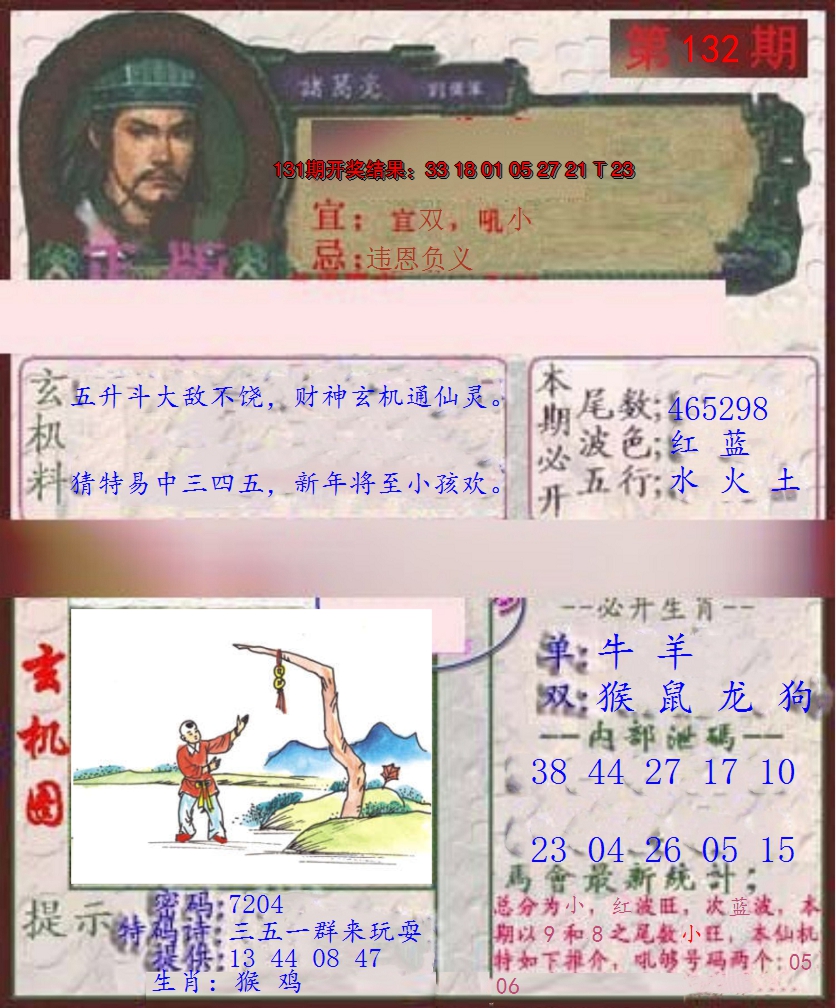 第132期
諸葛亮
131期开奖结果：33 18 01 05 27 21 T 23
宜；宜双，吼小
忌；违恩负义
正版
玄机料
五升斗大敌不饶，财神玄机通仙灵。
猜特易中三四五，新年将至小孩欢。
本期必开
尾数;465298
波色;红 蓝
五行;水 火 土
玄机图
--必开生肖--
单:牛 羊
双:猴 鼠 龙 狗
--内部泄碼--
38 44 27 17 10
23 04 26 05 15
馬會最新统计;
总分为小，红波旺，次蓝波，本
期以9和8之尾数小旺，本仙机
特如下推介，吼够号码两个:05
06
提示
密码:7204
特码诗:三五一群来玩耍
提供:13 44 08 47
生肖：猴 鸡